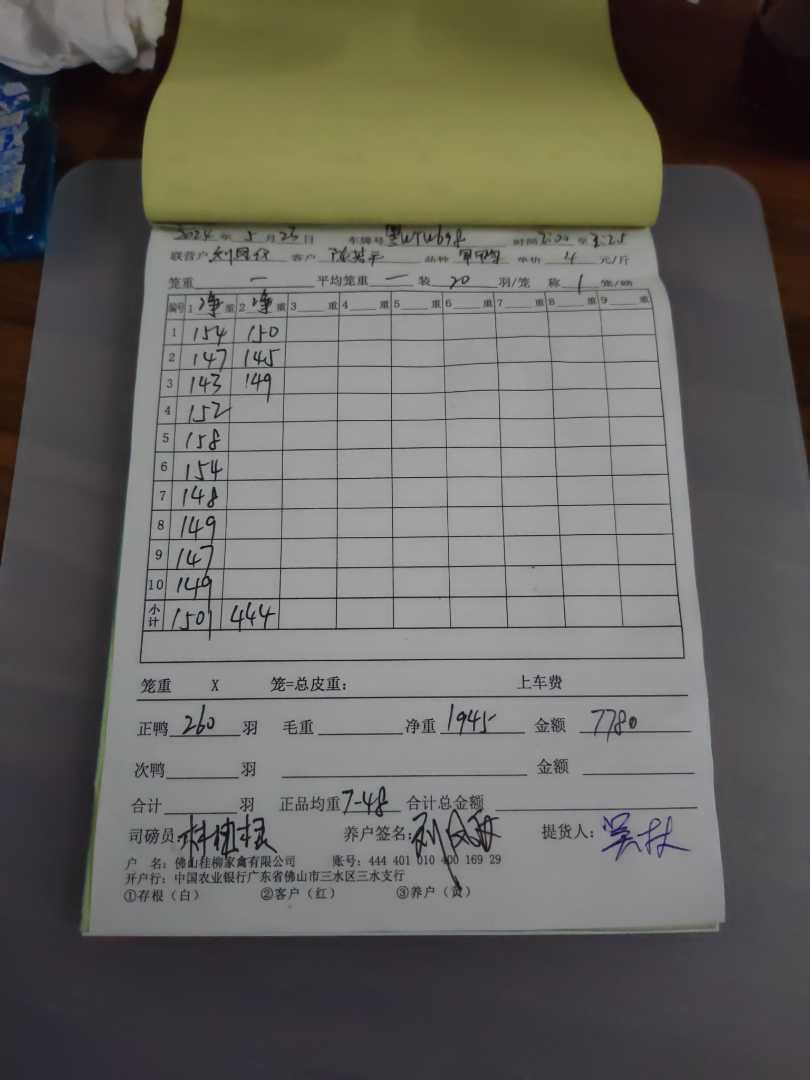 2024 年 5 月 23 日 车牌号 时间 3:00 至 3:25
联营户 客户 品种 单价 4 元/斤
笼重 一 平均笼重 一 装 20 羽/笼 称 1 笼/磅
编号 1 净 重 2 净 重 3 重 4 重 5 重 6 重 7 重 8 重 9 重
1 154 150
2 147 145
3 143 149
4 152
5 158
6 154
7 148
8 149
9 147
10 149
小计 1501 444
笼重 X 笼=总皮重： 上车费
正鸭 260 羽 毛重 净重 1945 金额 7780
次鸭 羽 金额
合计 羽 正品均重 7-48 合计总金额
司磅员： 养户签名： 提货人： 吴林
户 名：佛山桂柳家禽有限公司 账号：444 401 010 400 169 29
开户行：中国农业银行广东省佛山市三水区三水支行
①存根（白） ②客户（红） ③养户（黄）